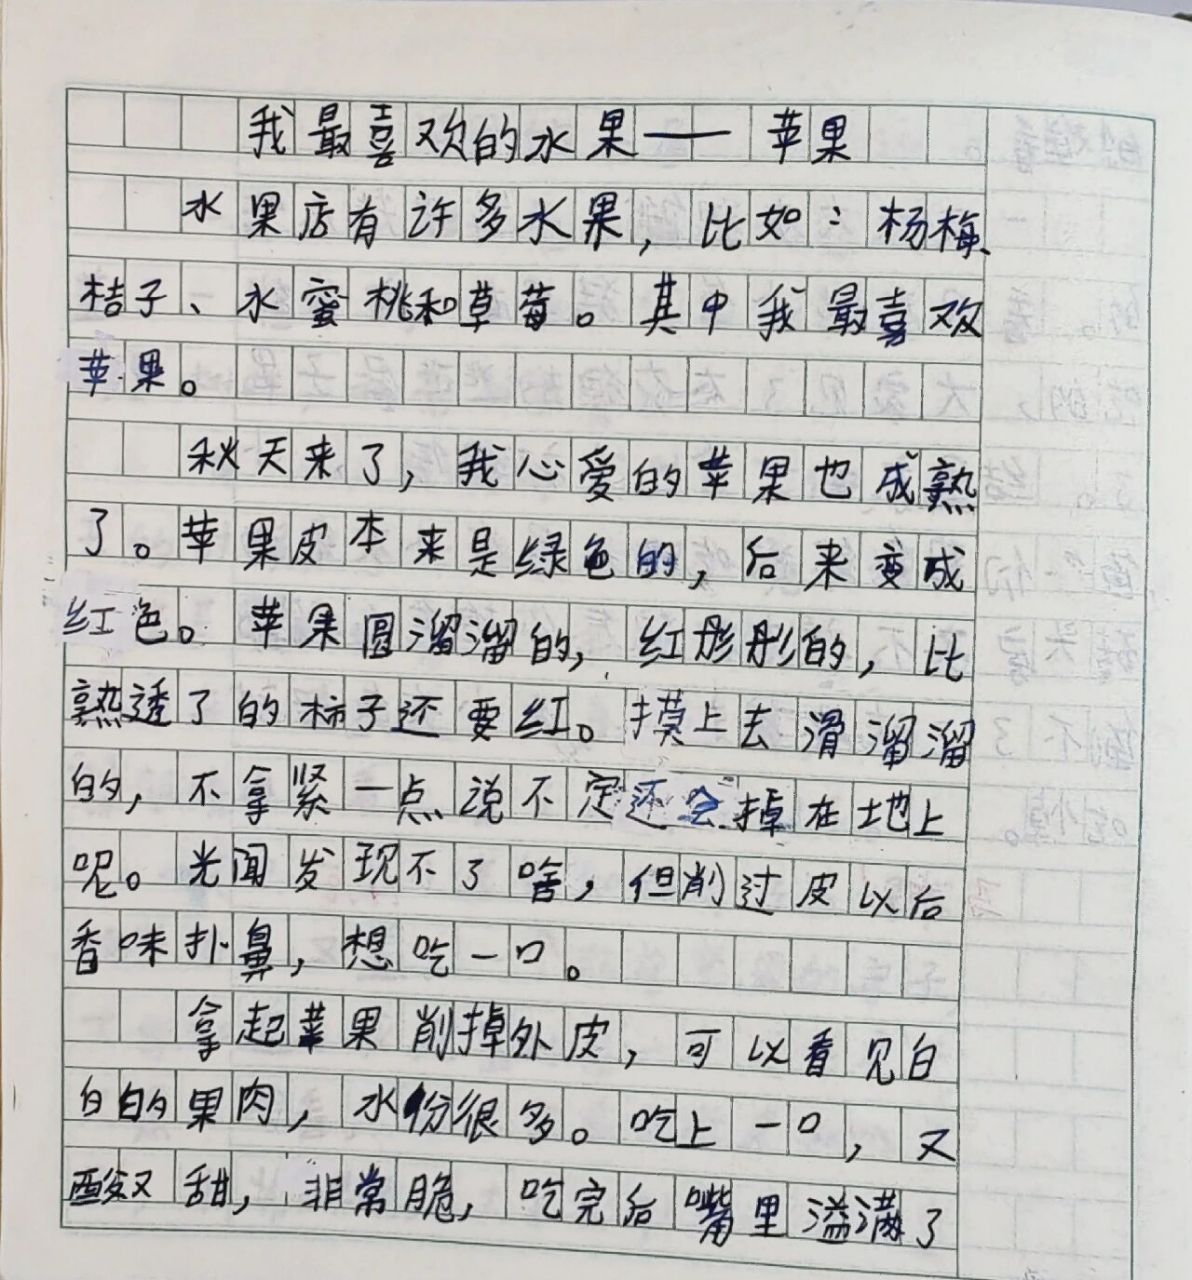 我最喜欢的水果——苹果
水果店有许多水果，比如：杨梅、
桔子、水蜜桃和草莓。其中我最喜欢
苹果。
秋天来了，我心爱的苹果也成熟
了。苹果皮本来是绿色的，后来变成
红色。苹果圆溜溜的，红彤彤的，比
熟透了的柿子还要红。摸上去滑溜溜
的，不拿紧一点说不定还会掉在地上
呢。光闻发现不了啥，但削过皮以后
香味扑鼻，想吃一口。
拿起苹果削掉外皮，可以看见白
白的果肉，水份很多。吃上一口，又
酸又甜，非常脆，吃完后嘴里溢满了